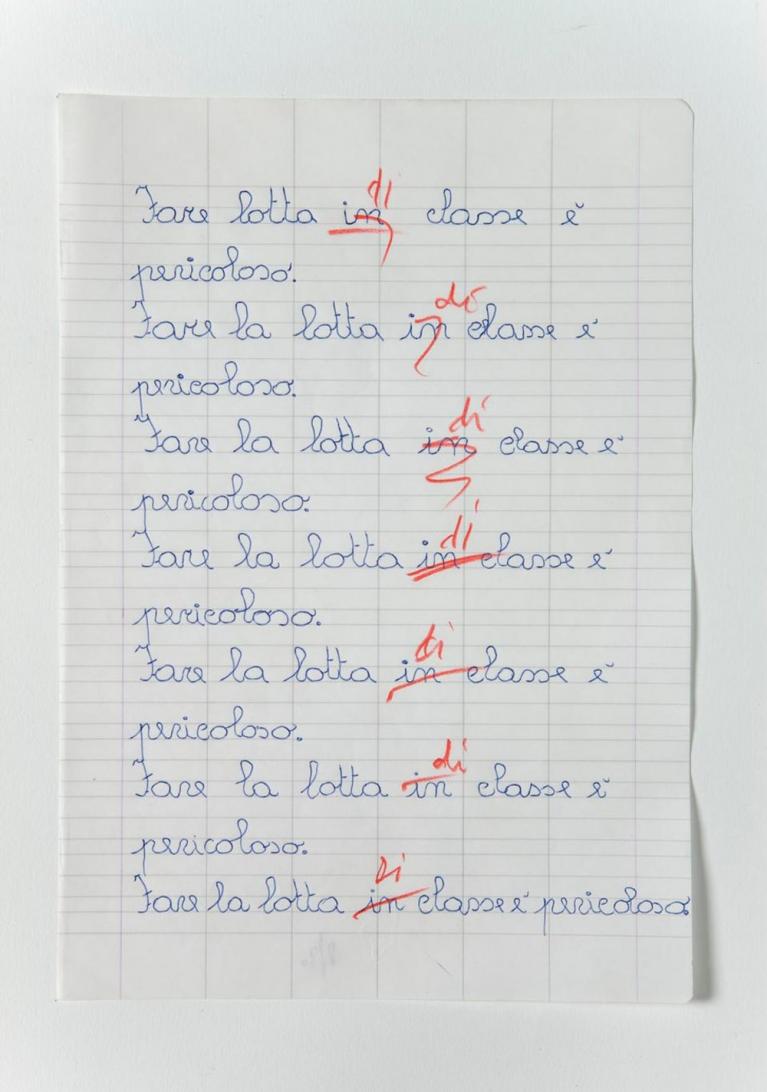 di
Fare lotta in classe è
pericoloso.
di
Fare la lotta in classe è
pericoloso.
di
Fare la lotta in classe è
pericoloso.
di
Fare la lotta in classe è
pericoloso.
di
Fare la lotta in classe è
pericoloso.
di
Fare la lotta in classe è
pericoloso.
di
Fare la lotta in classe è pericoloso